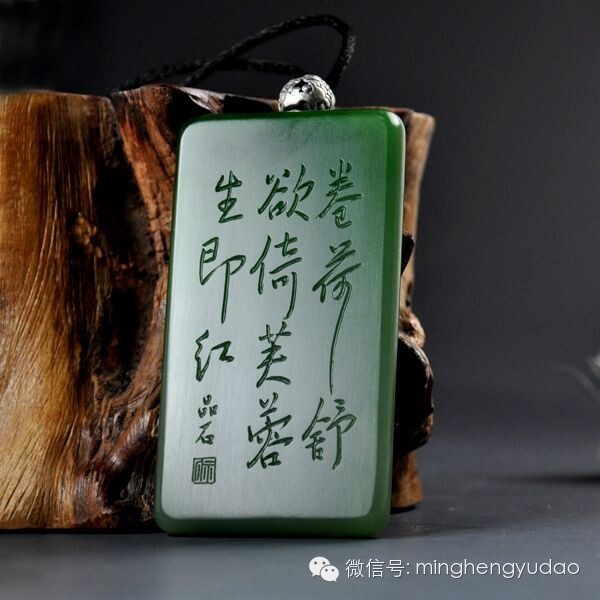 卷荷舒
欲倚芙蓉
生即红
品石
微信号: minghengyudao